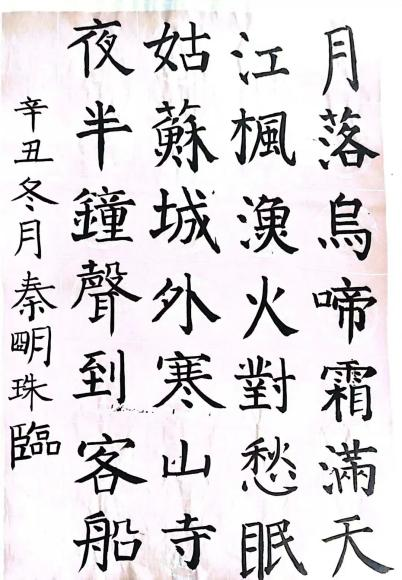 月落烏啼霜滿天
江楓漁火對愁眠
姑蘇城外寒山寺
夜半鐘聲到客船
辛丑冬月秦明珠臨